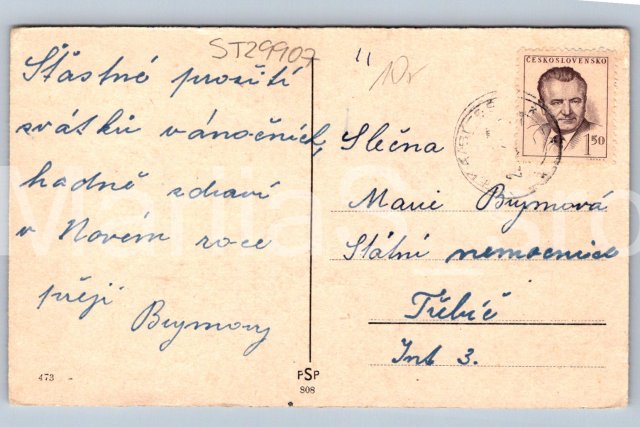 ST29907
"
10,-
Šťastné prožití
svátků vánočních,
hodně zdraví
v Novém roce
přejí
Brymovy
ČESKOSLOVENSKO
1.50
Slečna
Marie Brymová
Státní nemocnice
Třebíč
Int 3.
473
PSP
808